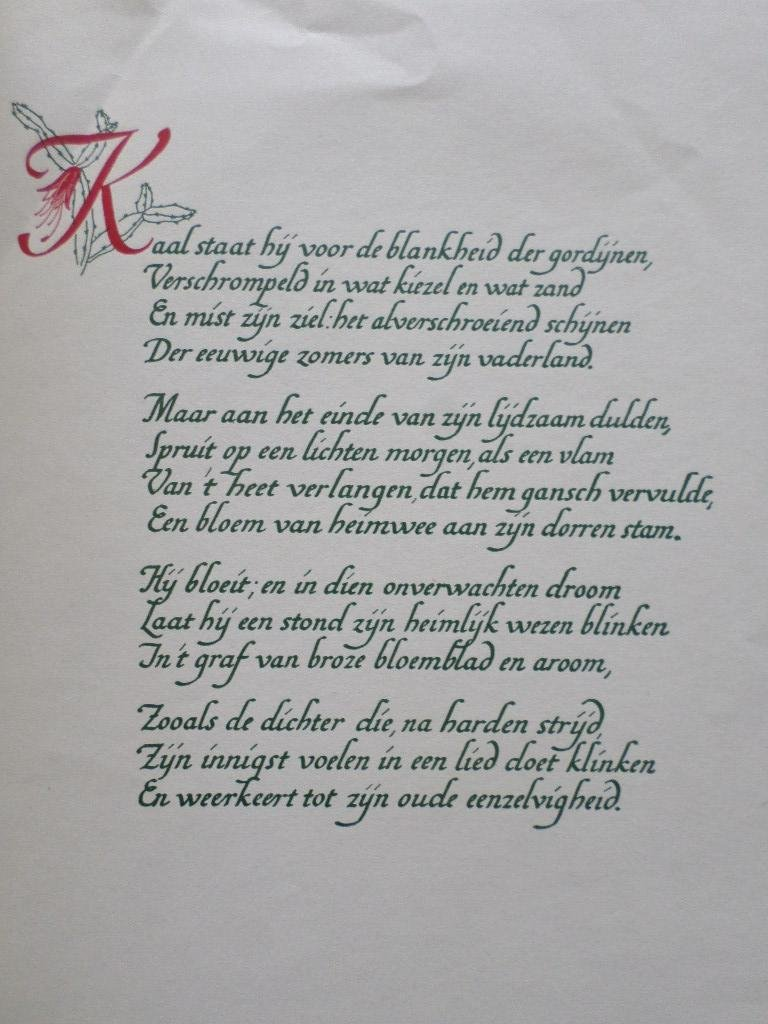 Kaal staat hij voor de blankheid der gordijnen,
Verschrompeld in wat kiezel en wat zand
En mist zijn ziel: het alverschroeiend schijnen
Der eeuwige zomers van zijn vaderland.
Maar aan het einde van zijn lijdzaam dulden,
Spruit op een lichten morgen, als een vlam
Van 't heet verlangen, dat hem gansch vervulde,
Een bloem van heimwee aan zijn dorren stam.
Hij bloeit; en in dien onverwachten droom
Laat hij een stond zijn heimlijk wezen blinken
In 't graf van broze bloemblad en aroom,
Zooals de dichter die, na harden strijd,
Zijn innigst voelen in een lied doet klinken
En weerkeert tot zijn oude eenzelvigheid.